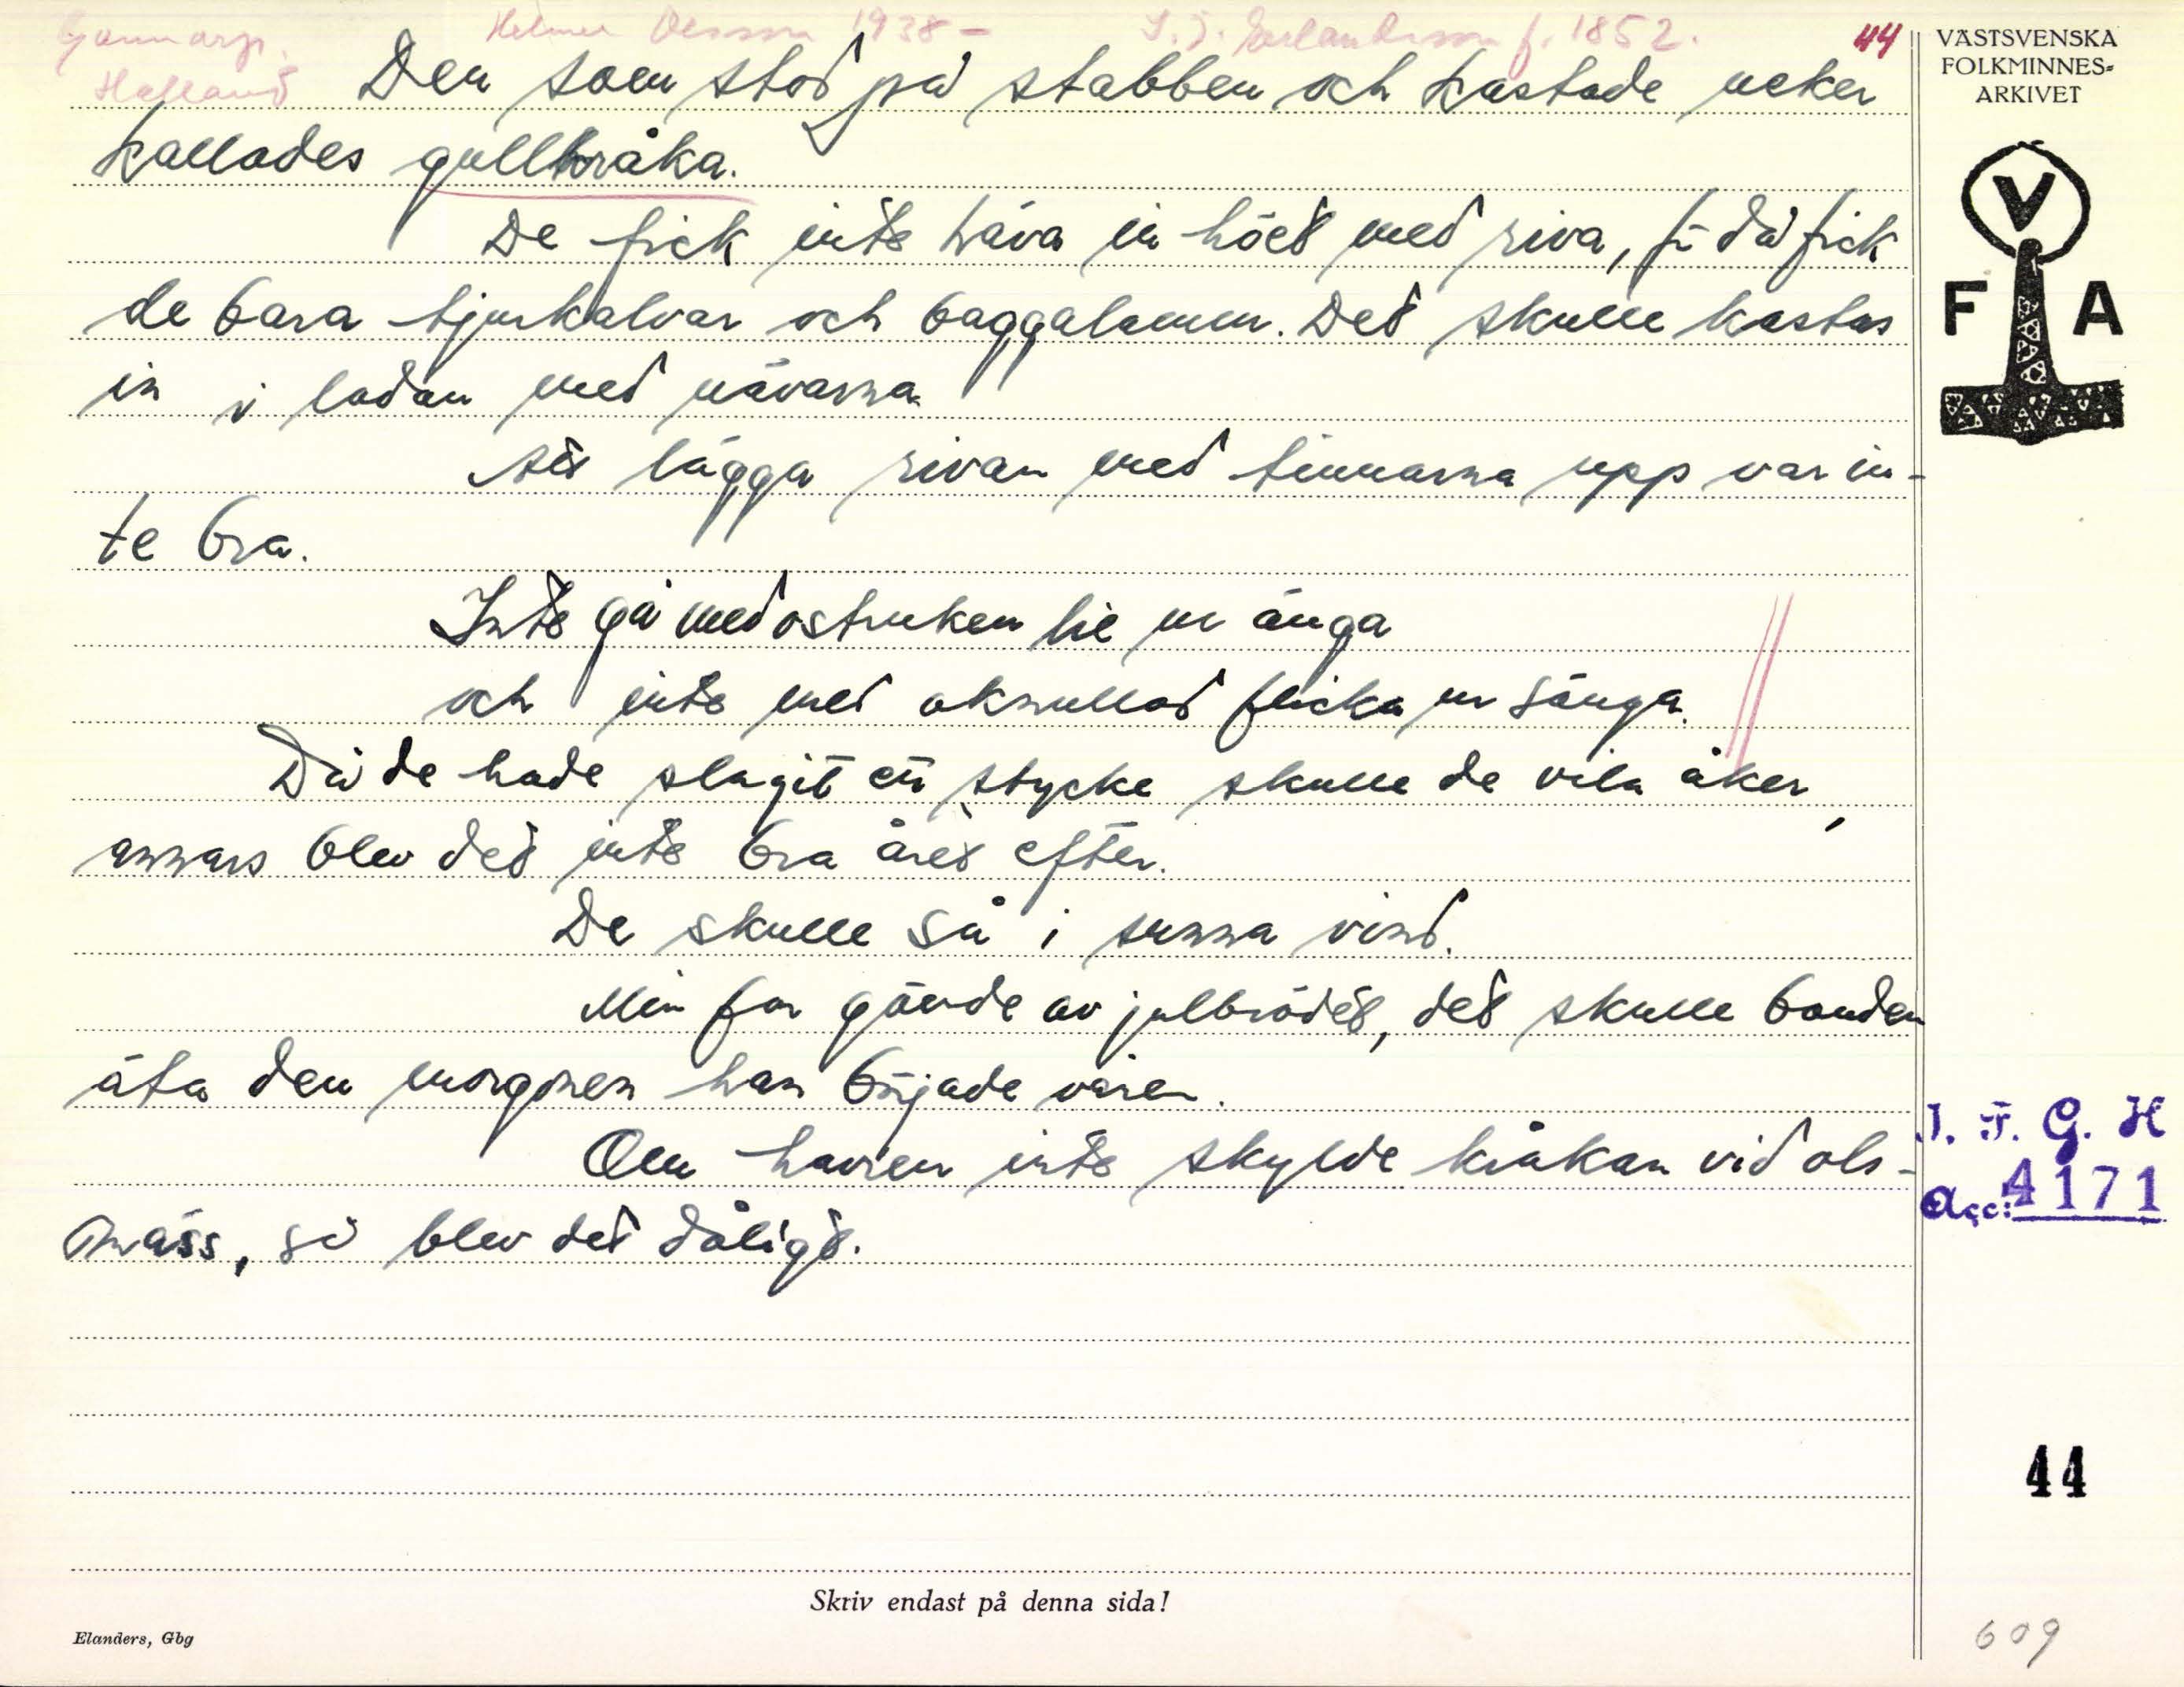 Gunnarp. Helmer Olsson 1938 - S. J. Erlandsson f. 1852. 44
Halland Den som stod på stabben och kastade neker
kallades gullkråka.
De fick inte häva in höet med riva, för då fick
de bara tjurkalvar och baggalamm. Det skulle kastas
in i ladan med nävarna.
Att lägga rivan med tinnarna upp var in-
te bra.
Inte gå med ostruken lie ur änga
och inte med oknullad flicka ur sänga.
Då de hade slagit ett stycke skulle de vila åker,
annars blev det inte bra året efter.
De skulle så i sunna vind.
Min far gömde av julbrödet, det skulle bonden
äta den morgonen han började våren.
Om havren inte skylde kråkan vid ols-
mäss, så blev det dåligt.
Skriv endast på denna sida!
Elanders, Gbg
VÄSTSVENSKA
FOLKMINNES-
ARKIVET
V
F A
I. F. G. H
Acc: 4171
44
609